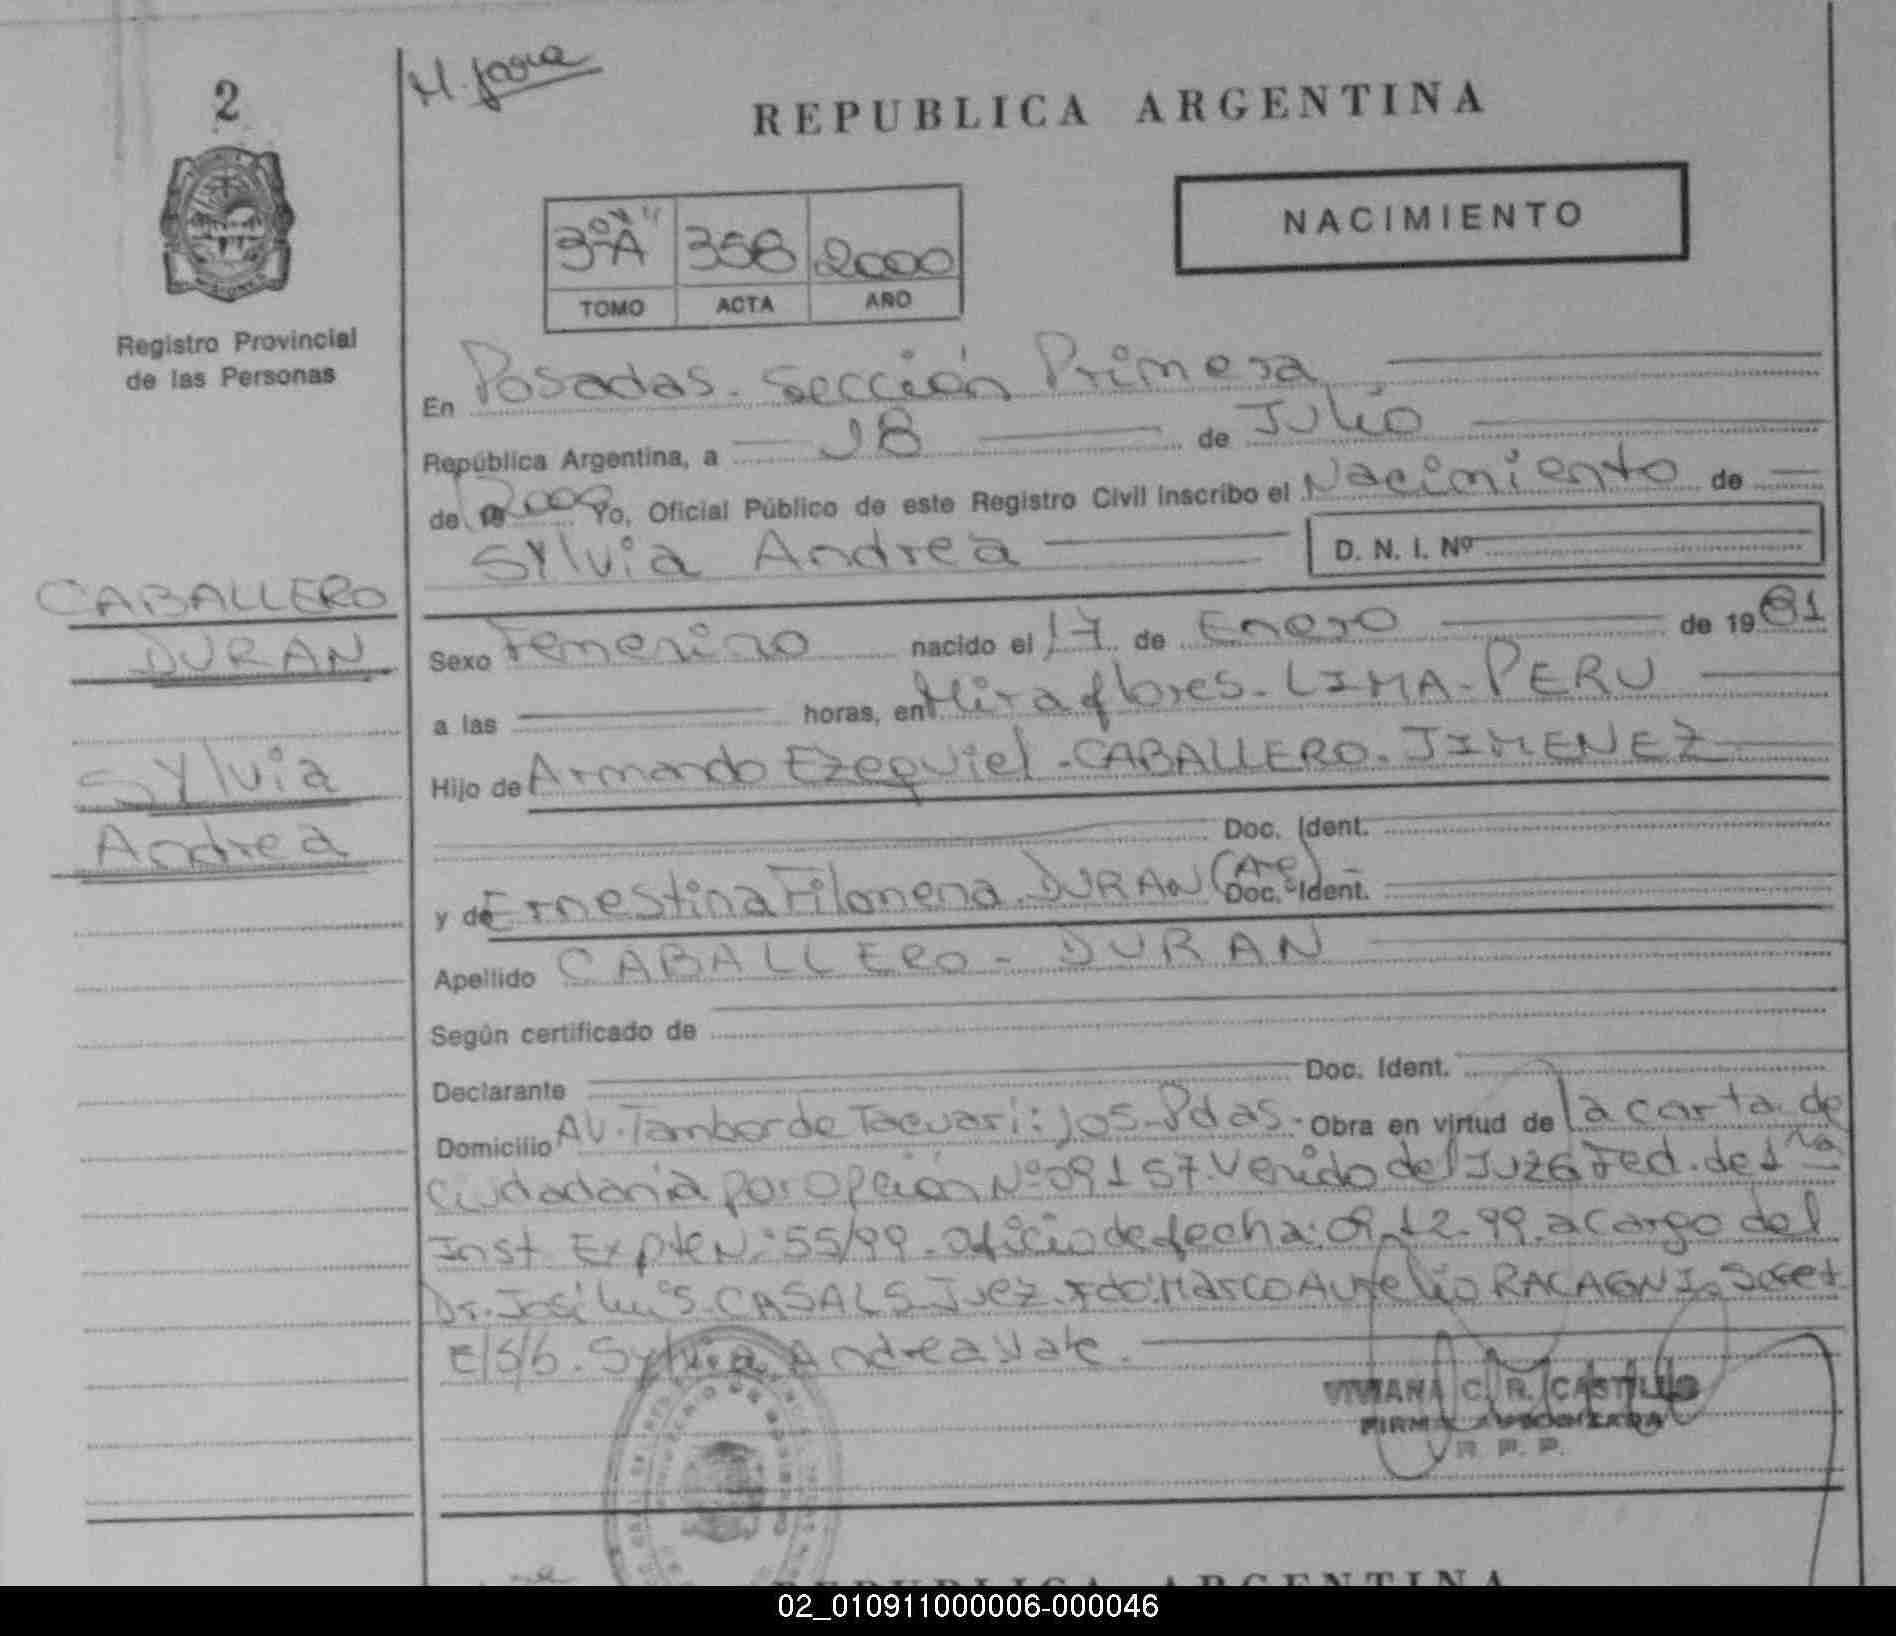 2
H. Jara
REPUBLICA ARGENTINA
NACIMIENTO
3º "A" 358 2000
TOMO ACTA AÑO
Registro Provincial
de las Personas
En Posadas. Sección Primera.
República Argentina, a 18 de Julio
de 2000 Yo, Oficial Público de este Registro Civil inscribo el Nacimiento de
Sylvia Andrea D. N. I. Nº
CABALLERO
DURAN
Sylvia
Andrea
Sexo Femenino nacido el 17 de Enero de 1981
a las horas, en Miraflores - LIMA - PERU
Hijo de Armando Ezequiel - CABALLERO - JIMENEZ
Doc. Ident.
y de Ernestina Filomena DURAN (Arg) Doc. Ident.
Apellido CABALLERO - DURAN
Según certificado de
Declarante Doc. Ident.
Domicilio AV. Tambor de Tacuari: 105 - Pdas. Obra en virtud de la carta de
Ciudadania por opción Nº 09157. Venido del Juzg Fed. de 1ra
Inst Expte N: 55/99. oficio de fecha: 09.12.99. a cargo del
Dr. José Luis CASALS Juez. Fdo: Marco Aurelio RACAGNI. Secret
E/S/b. Sylvia Andrea Vale.
VIVIANA C. R. CASTILLO
FIRMA AUTORIZADA
R. P. P.
REPUBLICA ARGENTINA
02_010911000006-000046